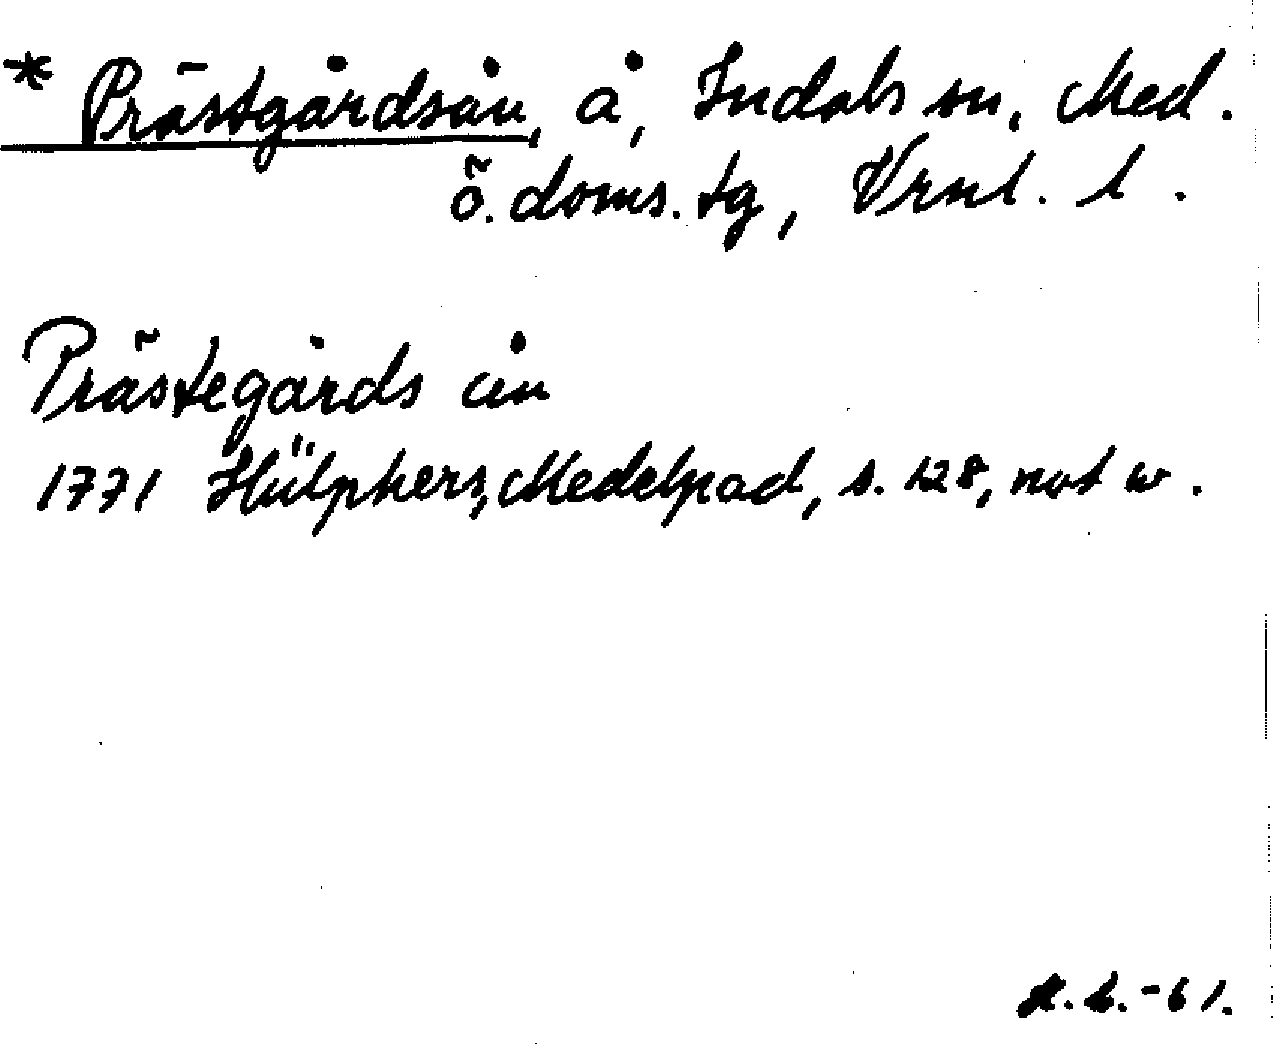 * Prästgårdsån, å, Indals sn, Med.
ö. doms. tg, Vrnl. l.
Prästegårds ån
1771 Hülphers, Medelpad, s. 128, not w.
-61.